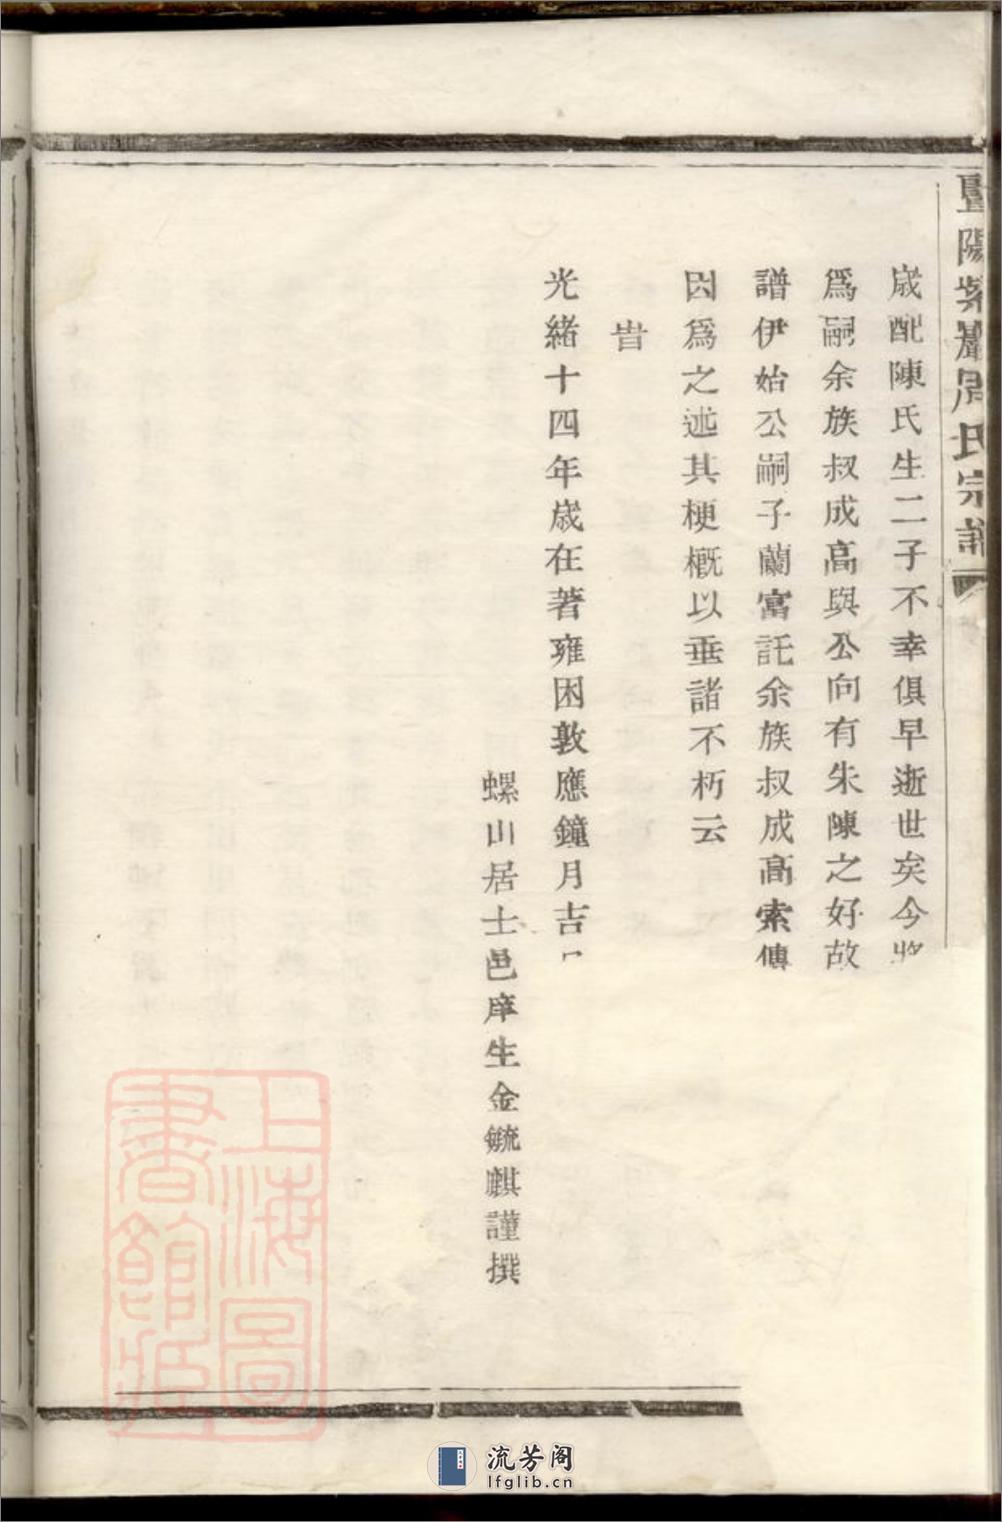 暨陽紫巖周氏宗譜
歲配陳氏生二子不幸俱早逝世矣今將
爲嗣余族叔成高與公向有朱陳之好故
譜伊始公嗣子蘭富託余族叔成高索傳
因爲之述其梗概以垂諸不朽云
旹
光緒十四年歲在著雍困敦應鐘月吉日
螺山居士邑庠生金毓麒謹撰
上海圖書館藏
流芳阁
lfglib.cn